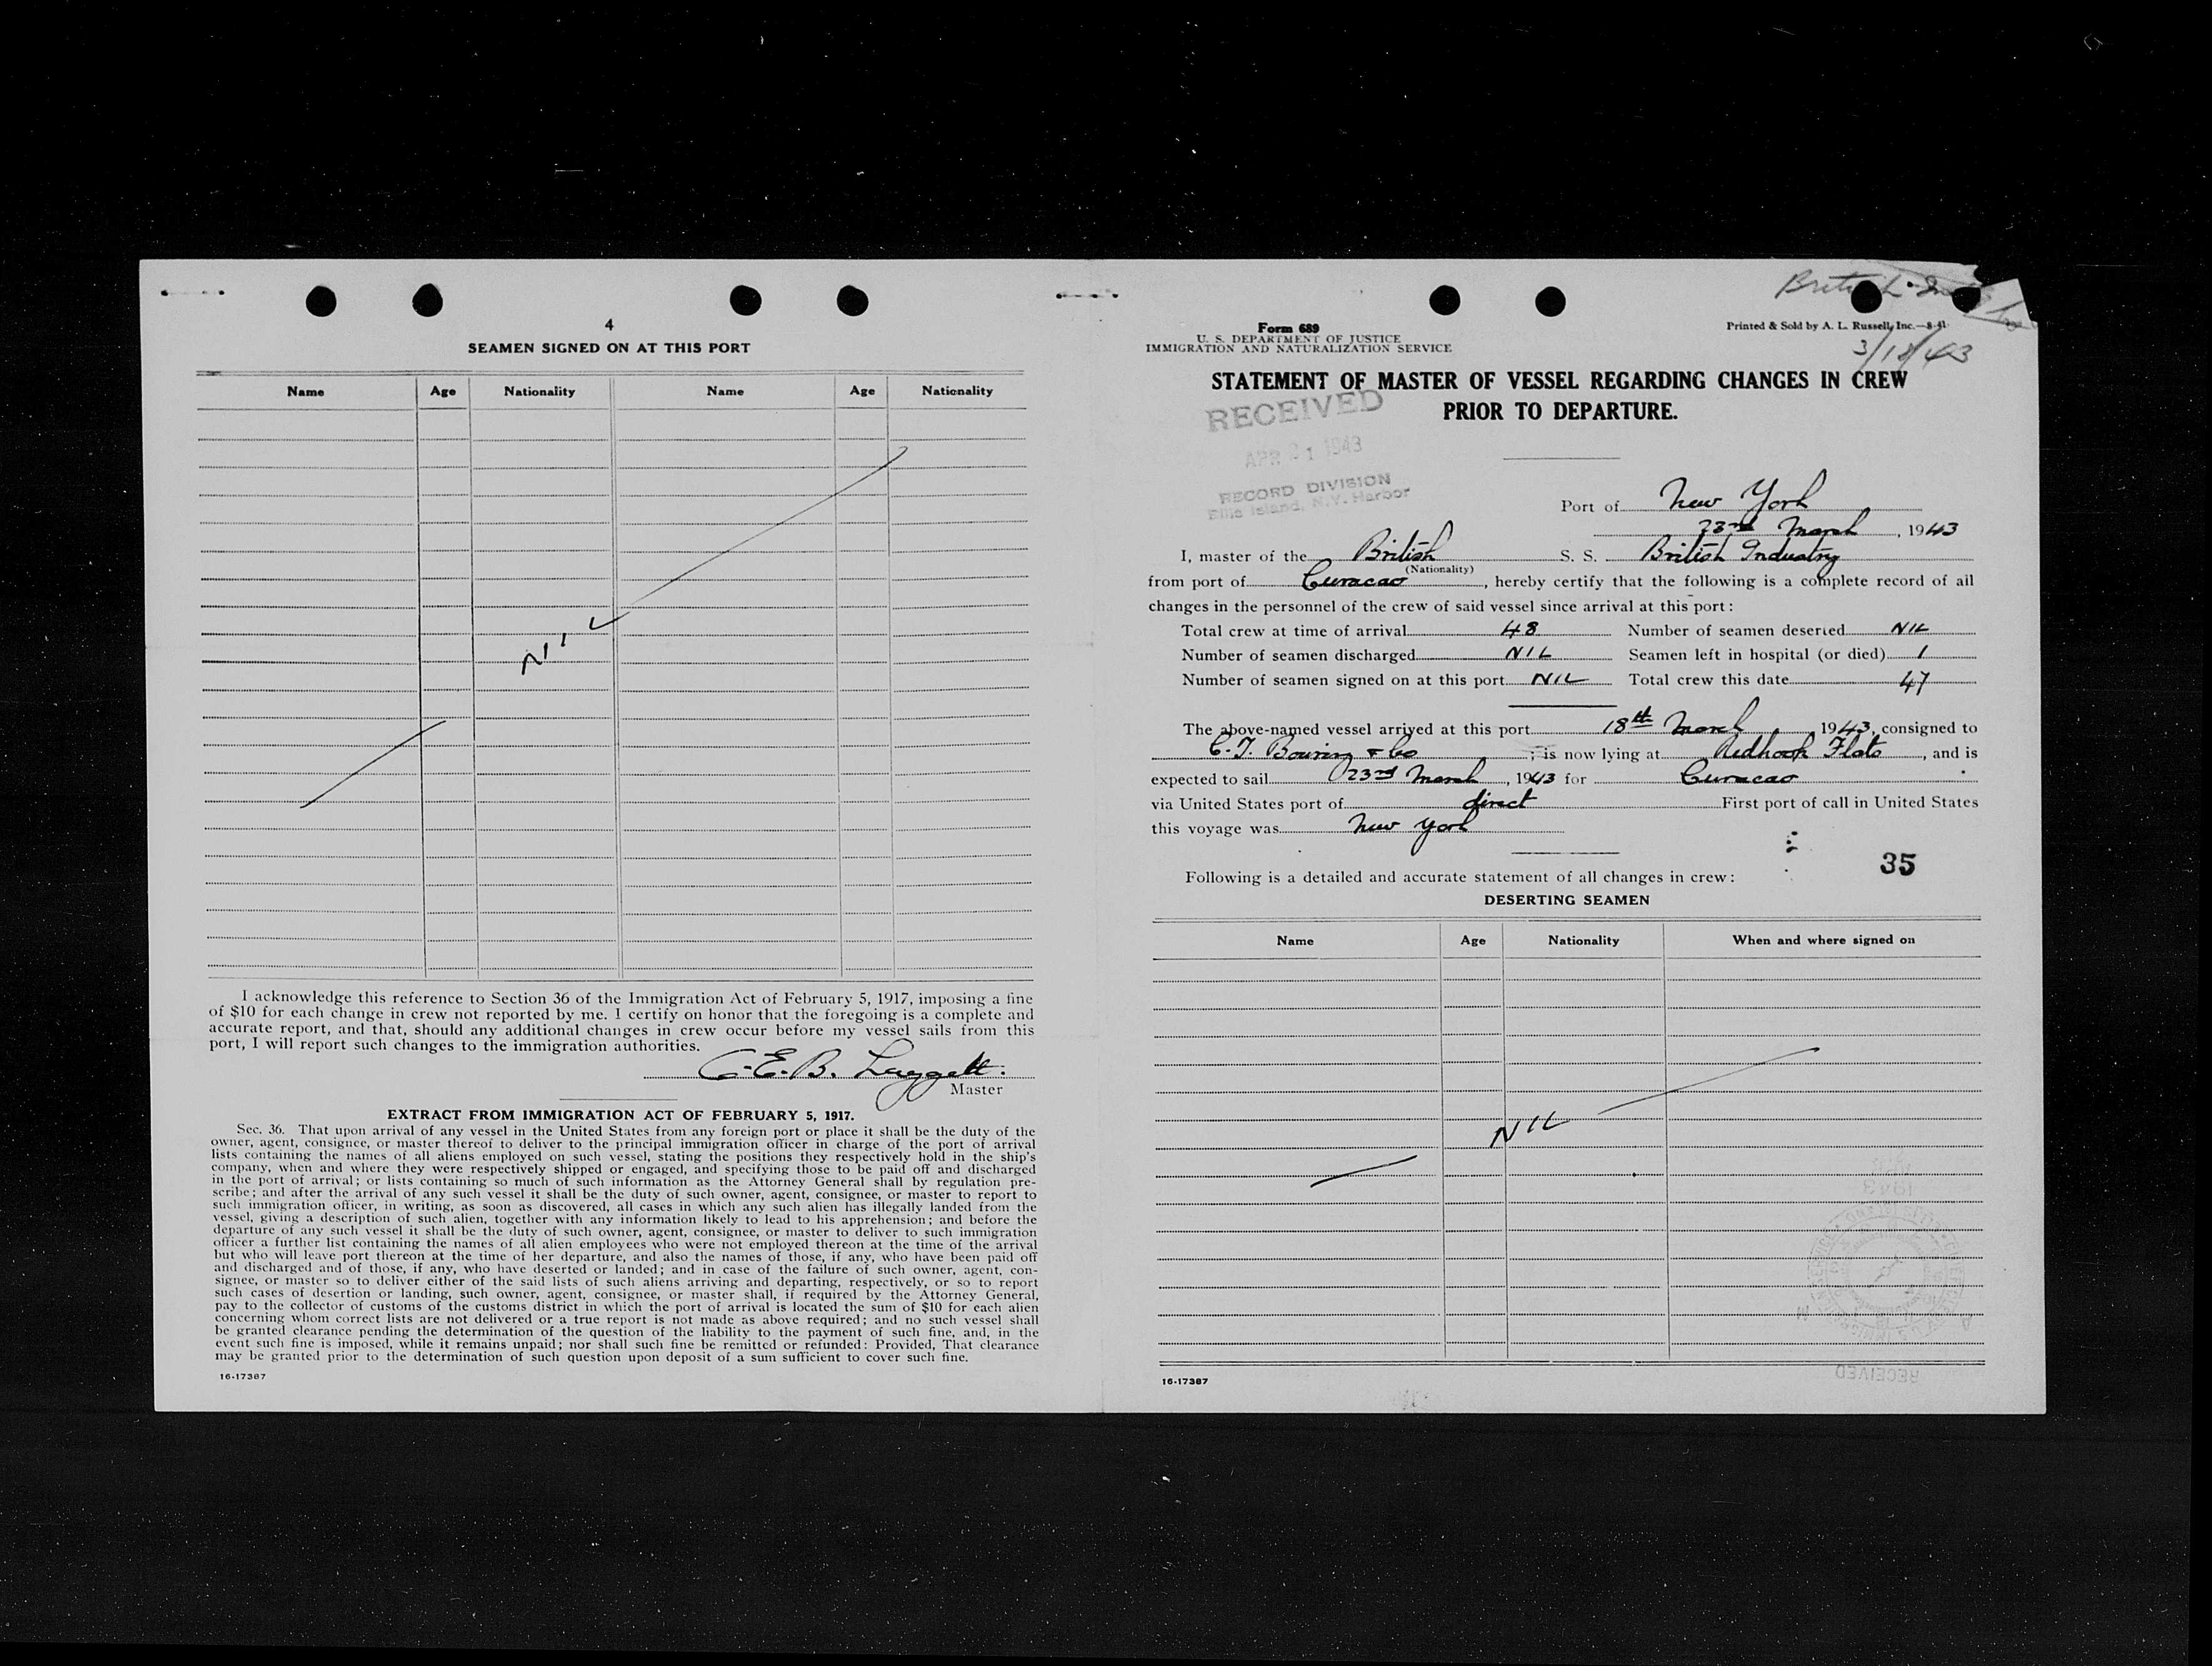 4
SEAMEN SIGNED ON AT THIS PORT
Name Age Nationality Name Age Nationality
NIL
I acknowledge this reference to Section 36 of the Immigration Act of February 5, 1917, imposing a fine
of $10 for each change in crew not reported by me. I certify on honor that the foregoing is a complete and
accurate report, and that, should any additional changes in crew occur before my vessel sails from this
port, I will report such changes to the immigration authorities.
C.E.B. Luggett.
Master
EXTRACT FROM IMMIGRATION ACT OF FEBRUARY 5, 1917.
Sec. 36. That upon arrival of any vessel in the United States from any foreign port or place it shall be the duty of the
owner, agent, consignee, or master thereof to deliver to the principal immigration officer in charge of the port of arrival
lists containing the names of all aliens employed on such vessel, stating the positions they respectively hold in the ship's
company, when and where they were respectively shipped or engaged, and specifying those to be paid off and discharged
in the port of arrival; or lists containing so much of such information as the Attorney General shall by regulation pre-
scribe; and after the arrival of any such vessel it shall be the duty of such owner, agent, consignee, or master to report to
such immigration officer, in writing, as soon as discovered, all cases in which any such alien has illegally landed from the
vessel, giving a description of such alien, together with any information likely to lead to his apprehension; and before the
departure of any such vessel it shall be the duty of such owner, agent, consignee, or master to deliver to such immigration
officer a further list containing the names of all alien employees who were not employed thereon at the time of the arrival
but who will leave port thereon at the time of her departure, and also the names of those, if any, who have been paid off
and discharged and of those, if any, who have deserted or landed; and in case of the failure of such owner, agent, con-
signee, or master so to deliver either of the said lists of such aliens arriving and departing, respectively, or so to report
such cases of desertion or landing, such owner, agent, consignee, or master shall, if required by the Attorney General,
pay to the collector of customs of the customs district in which the port of arrival is located the sum of $10 for each alien
concerning whom correct lists are not delivered or a true report is not made as above required; and no such vessel shall
be granted clearance pending the determination of the question of the liability to the payment of such fine, and, in the
event such fine is imposed, while it remains unpaid; nor shall such fine be remitted or refunded: Provided, That clearance
may be granted prior to the determination of such question upon deposit of a sum sufficient to cover such fine.
16-17387
British
Form 689
U. S. DEPARTMENT OF JUSTICE
IMMIGRATION AND NATURALIZATION SERVICE
Printed & Sold by A. L. Russell, Inc.—8-41
3/18/43
STATEMENT OF MASTER OF VESSEL REGARDING CHANGES IN CREW
PRIOR TO DEPARTURE.
RECEIVED
APR 21 1943
RECORD DIVISION
Ellis Island, N.Y. Harbor
Port of New York
23rd March, 1943
I, master of the British S. S. British Industry
(Nationality)
from port of Curacao, hereby certify that the following is a complete record of all
changes in the personnel of the crew of said vessel since arrival at this port:
Total crew at time of arrival 48 Number of seamen deserted NIL
Number of seamen discharged NIL Seamen left in hospital (or died) 1
Number of seamen signed on at this port NIL Total crew this date 47
The above-named vessel arrived at this port 18th March 1943, consigned to
C.T. Bowring & Co; is now lying at Redhook Flats, and is
expected to sail 23rd March, 1943 for Curacao.
via United States port of direct First port of call in United States
this voyage was New York
35
Following is a detailed and accurate statement of all changes in crew:
DESERTING SEAMEN
Name Age Nationality When and where signed on
NIL
RECEIVED
16-17387